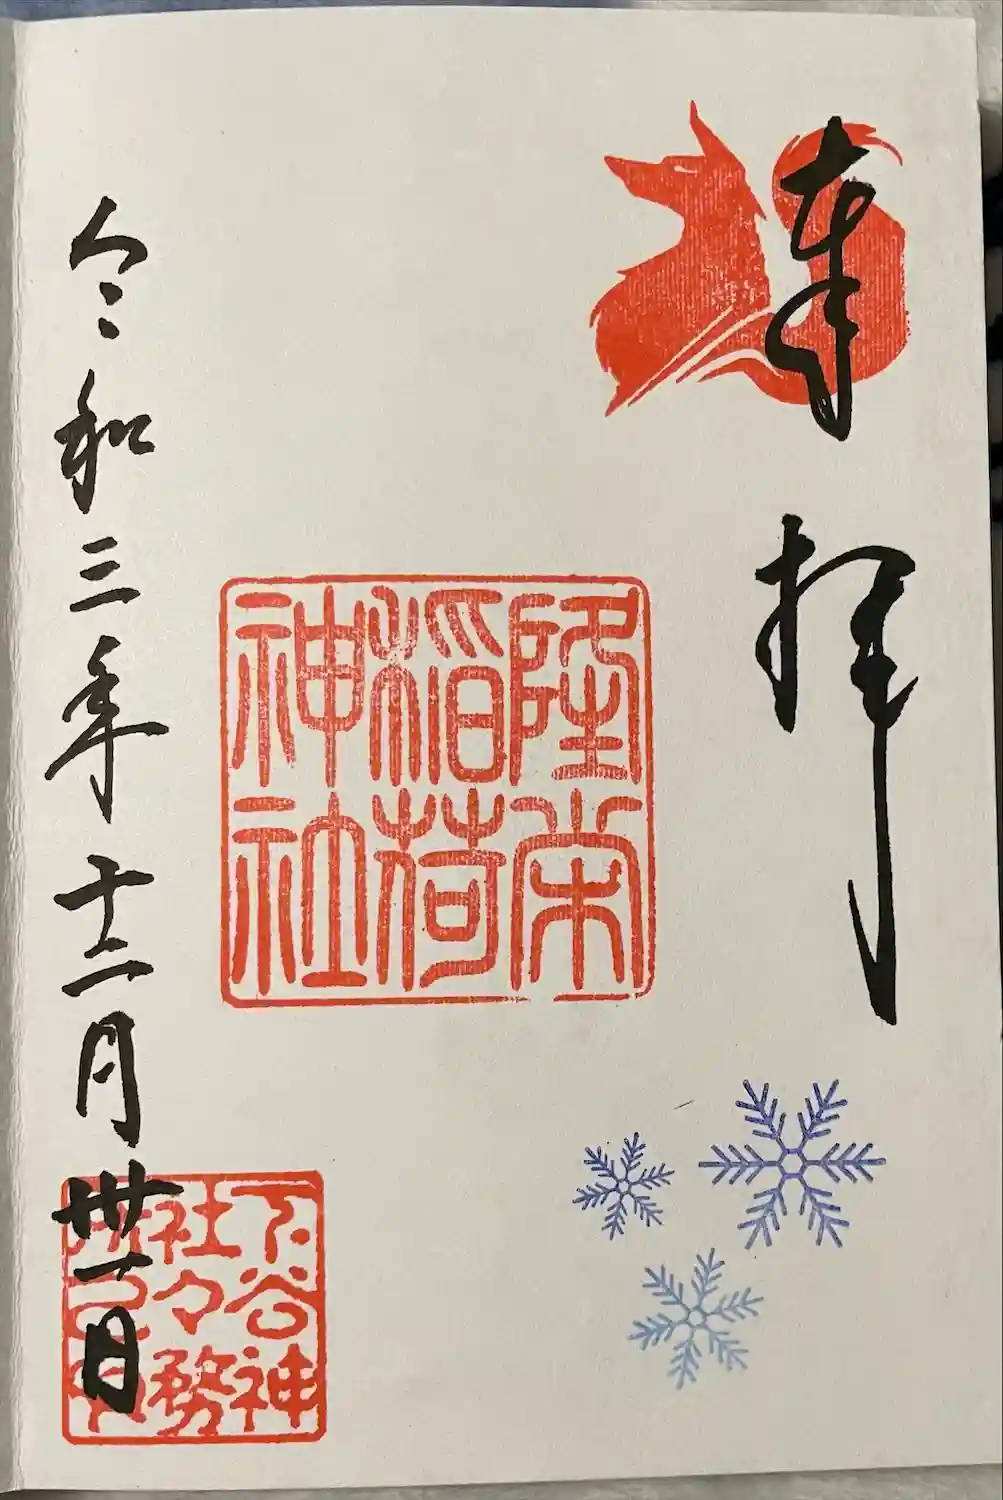 奉拝
隆栄
稲荷
神社
令和三年十二月卅一日
下谷神
社々務
所之印